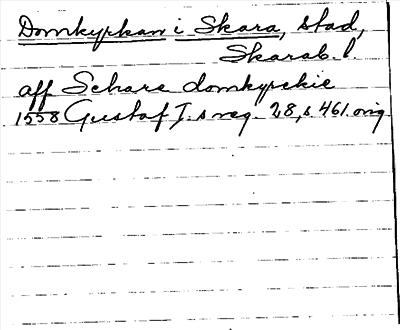 Domkyrkan i Skara, stad,
Skarab. l.
aff Schare domkyrckie
1558 Gustaf I.s reg. 28, s. 461. orig.